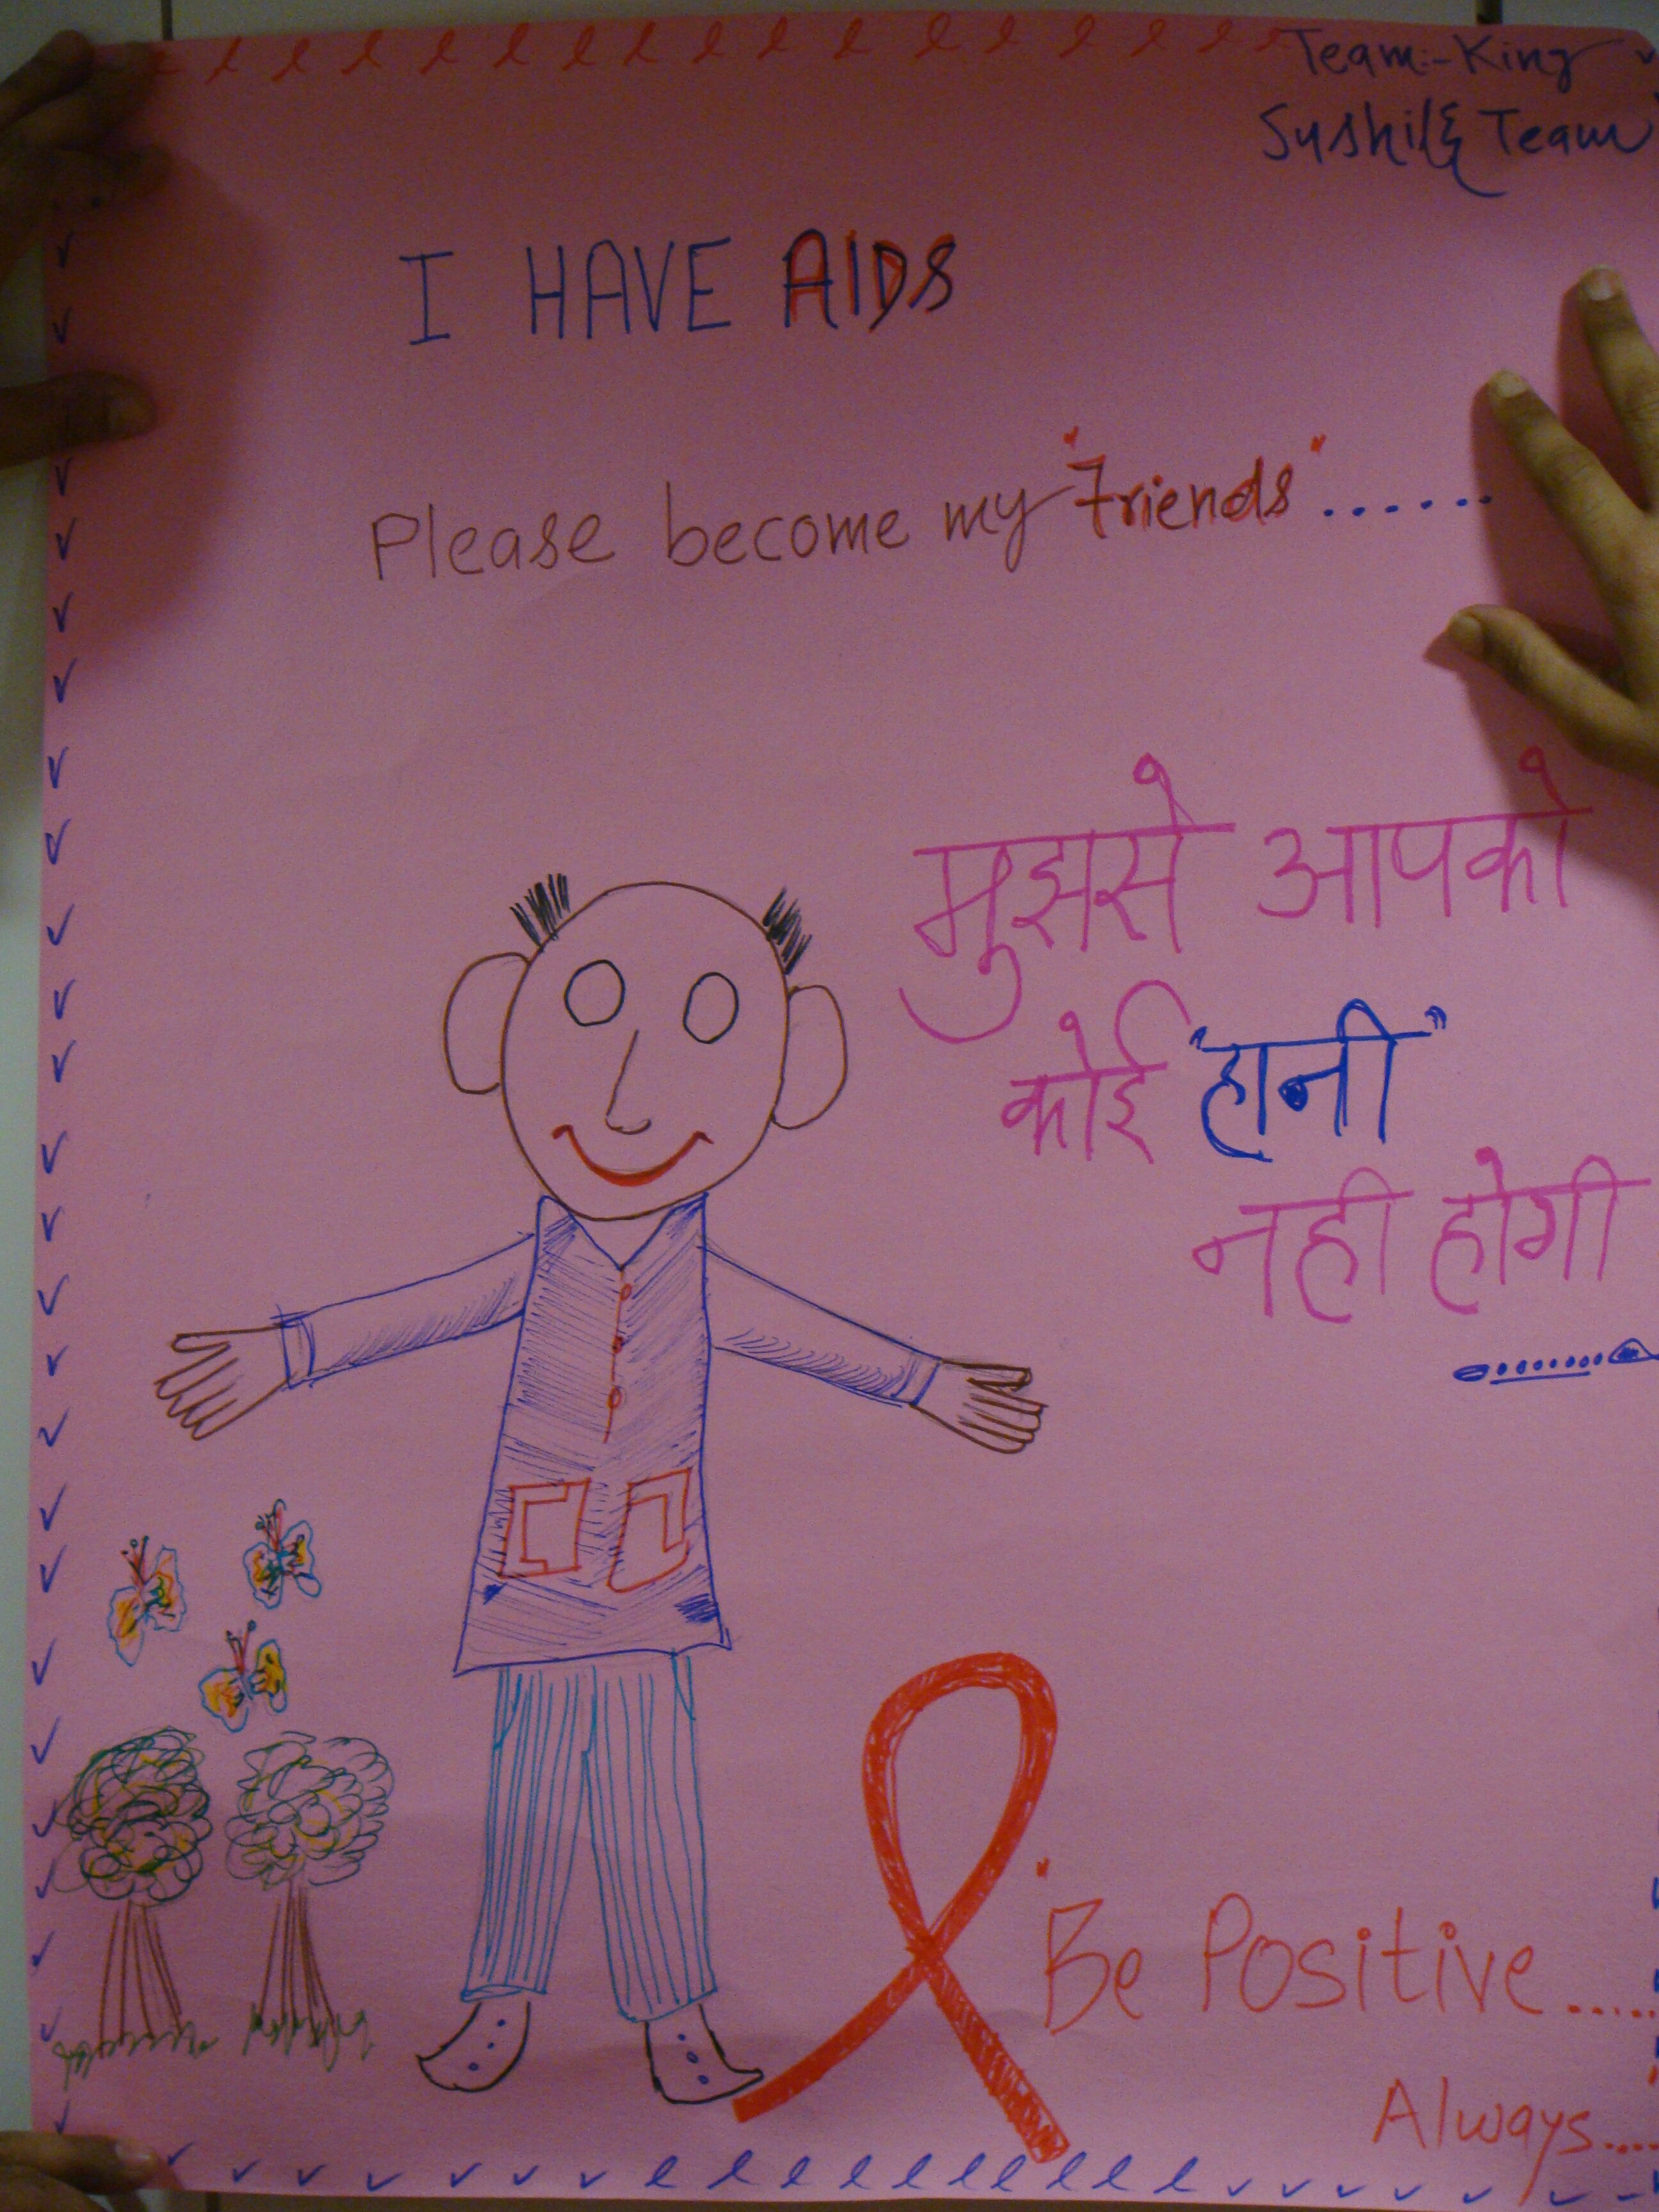 Team:- King
Sushil & Team
I HAVE AIDS
Please become my "Friends"......
मुझसे आपको
कोई "हानी"
नही होगी
"Be Positive.....
Always....